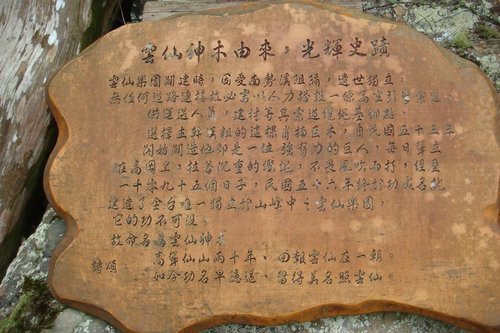 雲仙神木由來，光輝史蹟
雲仙樂園開建時，因受南勢溪阻隔，遺世獨立，
無任何道路連接故必需以人力搭設一條高空引
供運送人員，建材等
選擇五 巨木，自民國五十三年
開始 造他即是一位強有力的巨人，每日聳立
在高岡上，拉著沉重的纜繩，不畏風吹雨打，
一千零九十五個日子，民國五十六年終於功成名就
建造了全台唯一獨立於山峰中之雲仙樂園，
它的功不可沒。
故命名為雲仙神木
詩頌：高聳仙山兩千年、回報雲仙在一朝。
如今功名早隱退、留得美名照雲仙。